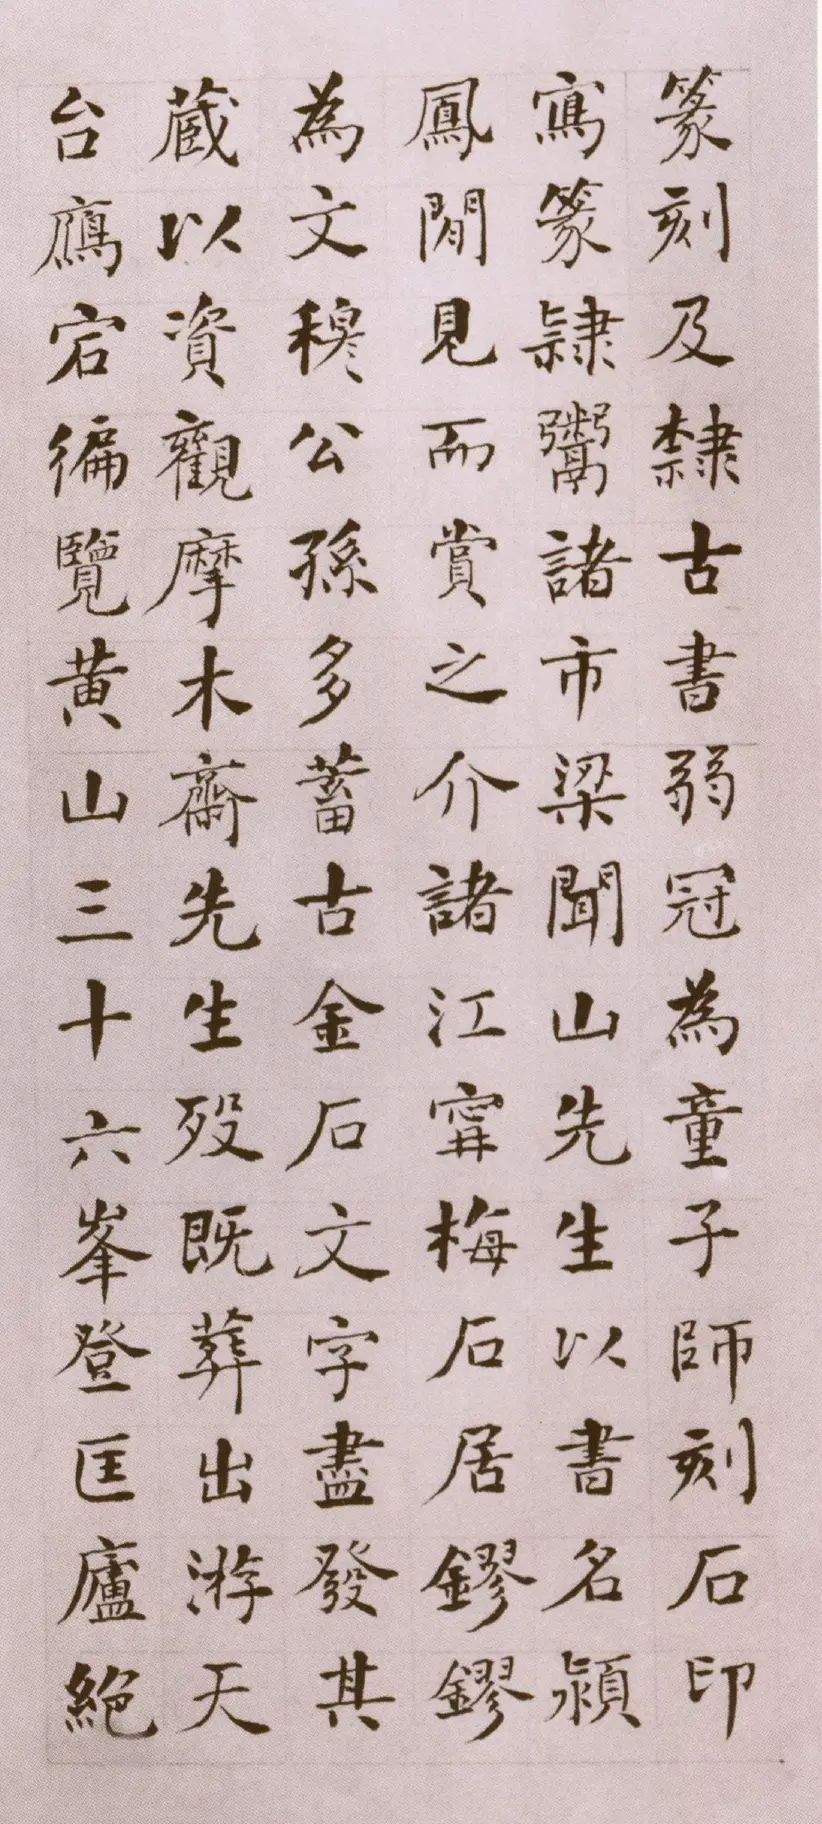 篆刻及隸古書弱冠為童子師刻石印
寫篆隸鬻諸市梁聞山先生以書名潁
鳳閒見而賞之介諸江寧梅石居鏐鏐
為文穆公孫多蓄古金石文字盡發其
蔵以資觀摩木齋先生歿既葬出游天
台鴈宕徧覽黄山三十六峯登匡廬絕